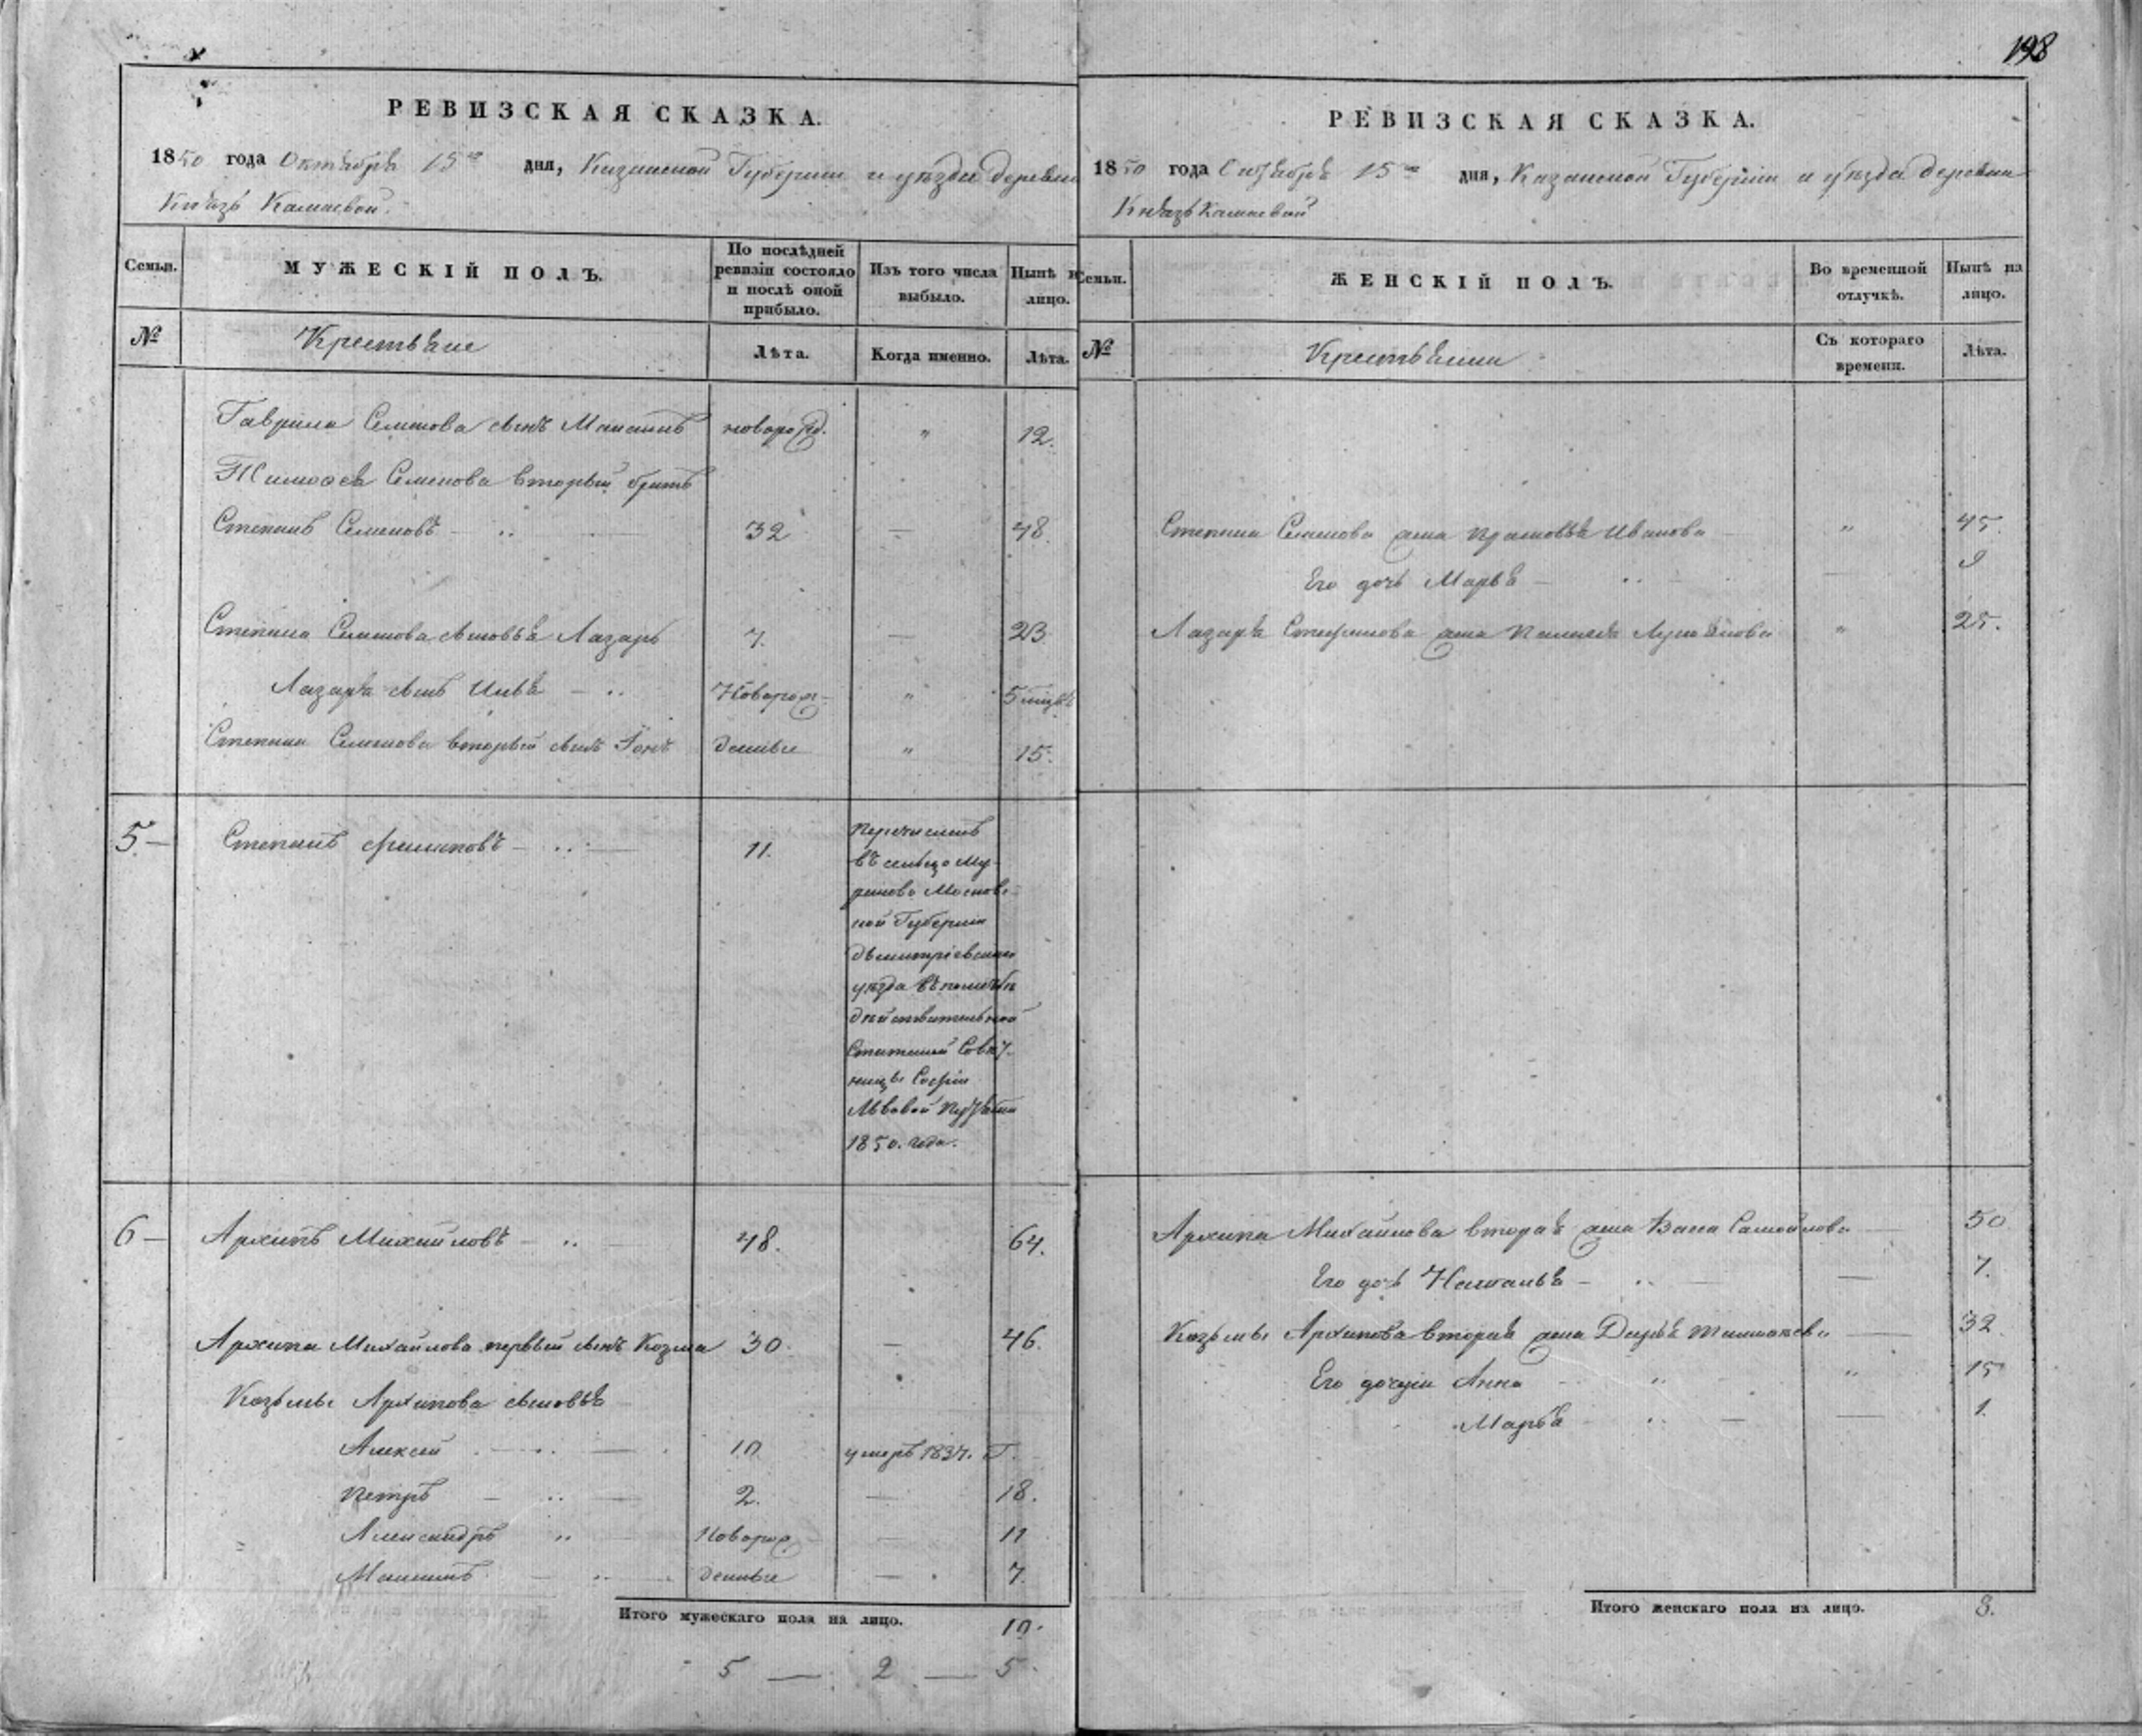 198
РЕВИЗСКАЯ СКАЗКА.
1850 года Октября 15го дня, Казанской Губерніи и уѣзда деревни
Князь Камаевой.
Семьи.
МУЖЕСКІЙ ПОЛЪ.
По послѣдней ревизіи состояло и послѣ оной прибыло.
Изъ того числа выбыло.
Нынѣ н лицо.
№
Крестьяне
Лѣта.
Когда именно.
Лѣта.
Гаврила Семенова сынъ Максимъ новорожд. " 12.
Тимофея Семенова вторый братъ
Степанъ Семеновъ — 32 — 48.
Степана Семенова сыновья Лазарь 7. — 23
Лазаря сынъ Илья — Новорож- " 5 мцвъ
Степана Семенова вторый сынъ денные " 15.
5 — Степанъ Филиповъ — 11.
Перечисленъ
въ сельцо
Московс-
кой Губерніи
Дмитріевскаго
уѣзда
дѣйствительной
Статской Совѣт-
ницы Софіи
Львовой
1850. года.
6 — Архипъ Михайловъ — 48. 64.
Архипа Михайлова первый сынъ Козма 30. — 46.
Козьмы Архипова сыновья
Алексей 10 умеръ 1837. Г.
Петръ — 2. — 18.
Александръ Новорож — 11
Максимъ денные — 7.
Итого мужескаго пола на лицо. 10.
5 — 2 — 5.
РЕВИЗСКАЯ СКАЗКА.
1850 года Октября 15го дня, Казанской Губерніи и уѣзда деревни
Князь Камаевой
Семьи.
ЖЕНСКІЙ ПОЛЪ.
Во временной отлучкѣ.
Нынѣ на лицо.
№
Крестьянки
Съ котораго времени.
Лѣта.
Степана Семенова жена Прасковья Иванова " 45.
Его дочь Марья — 9
Лазаря Степанова жена Пелагея " 25.
Архипа Михайлова вторая жена Васса Самойлова — 50
Его дочь Наталья — 7.
Козьмы Архипова вторая жена Дарья — 32.
Его дочери Анна " 15
Марья — 1.
Итого женскаго пола на лицо. 8.